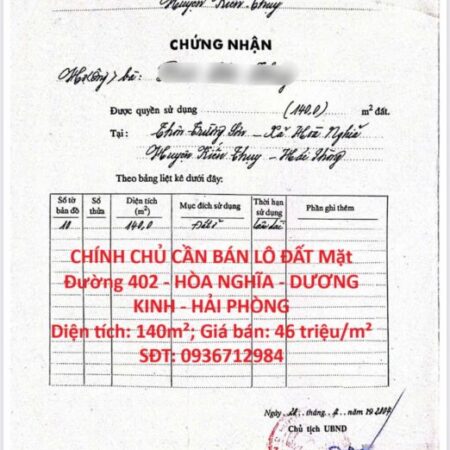 Huyện Kiến Thụy
CHỨNG NHẬN
Hộ (Ông) bà:
Được quyền sử dụng (140,0) m² đất.
Tại: Thôn Trường Sơn - Xã Hoà Nghĩa
Huyện Kiến Thụy - Hải Phòng
Theo bảng liệt kê dưới đây:
Số tờ bản đồ Số thửa Diện tích (m²) Mục đích sử dụng Thời hạn sử dụng Phần ghi thêm
10 140,0 Đất ở Lâu dài
CHÍNH CHỦ CẦN BÁN LÔ ĐẤT Mặt
Đường 402 - HÒA NGHĨA - DƯƠNG
KINH - HẢI PHÒNG
Diện tích: 140m²; Giá bán: 46 triệu/m²
SĐT: 0936712984
Ngày 28 tháng 2 năm
Chủ tịch UBND